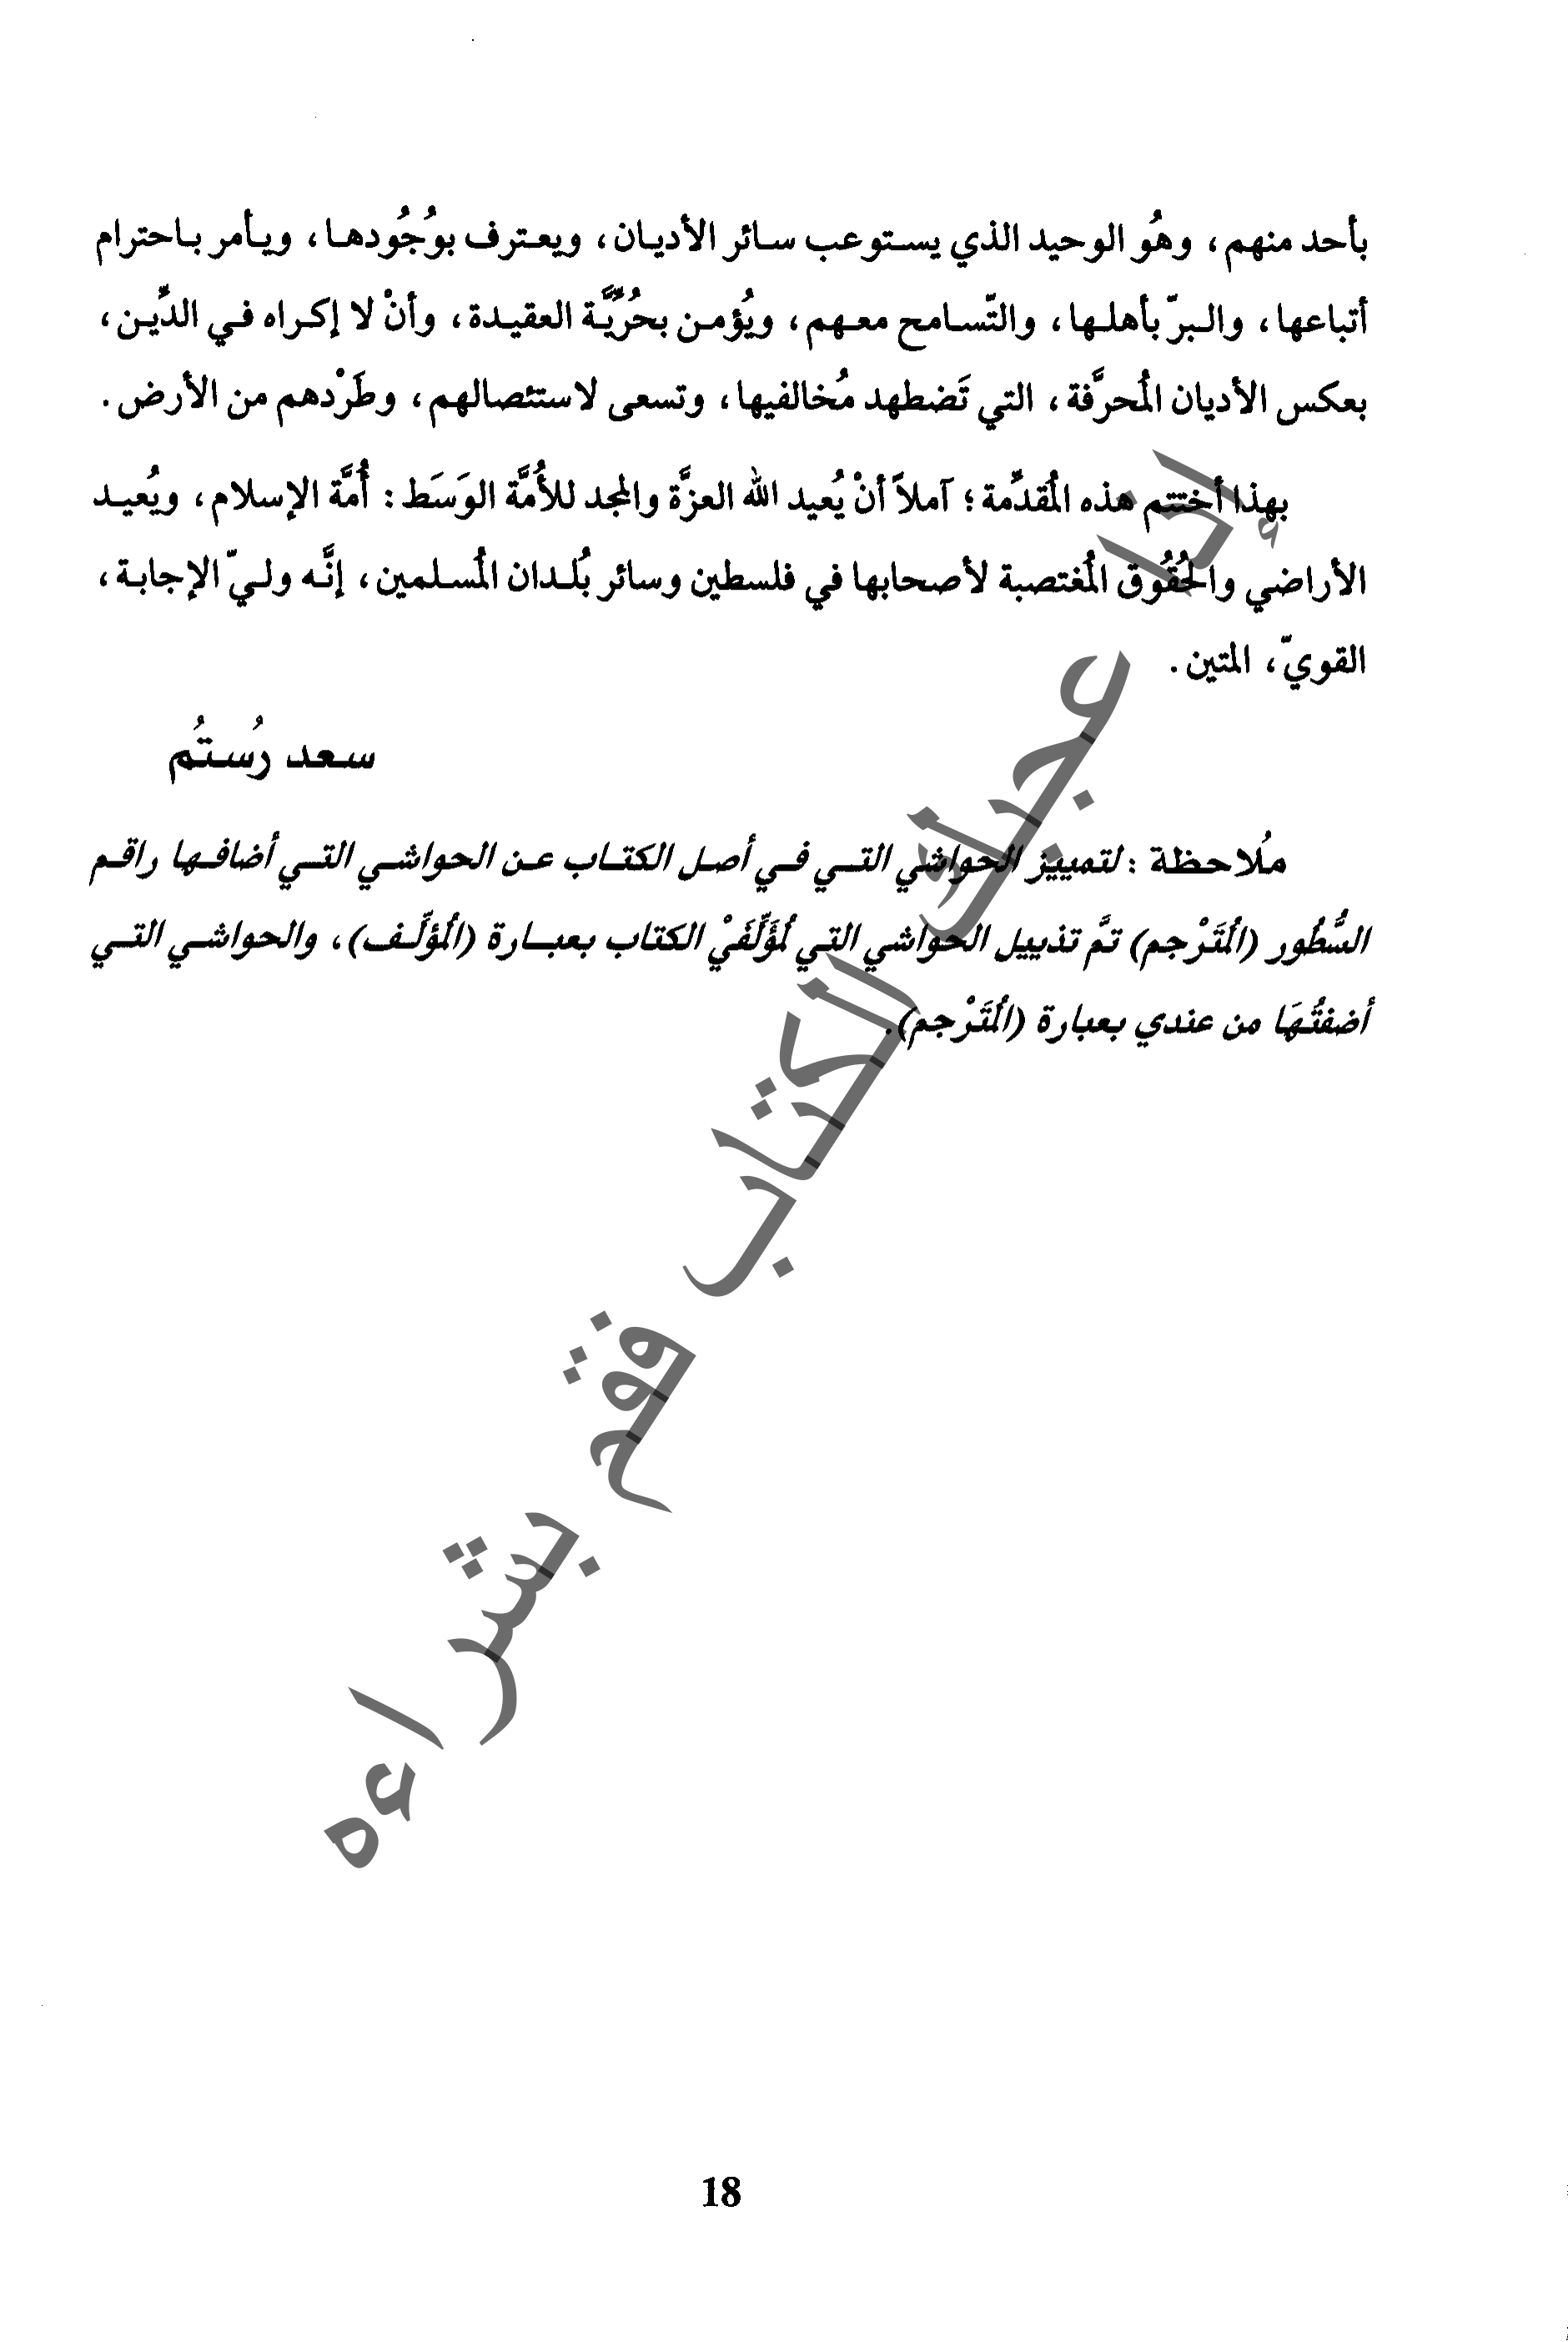 بأحد منهم، وهُو الوحيد الذي يستوعب سائر الأديان، ويعترف بوُجُودها، ويأمر باحترام
أتباعها، والبرّ بأهلها، والتّسامح معهم، ويُؤمن بحُرِّيَّة العقيدة، وأنْ لا إكراه في الدِّين،
بعكس الأديان المُحرَّفة، التي تَضطهد مُخالفيها، وتسعى لاستئصالهم، وطَرْدهم من الأرض.
بهذا أختتم هذه المُقدِّمة؛ آملاً أنْ يُعيد الله العزَّة والمجد للأُمَّة الوَسَط: أُمَّة الإسلام، ويُعيد
الأراضي والحُقُوق المُغتصبة لأصحابها في فلسطين وسائر بُلدان المُسلمين، إنَّه وليّ الإجابة،
القويّ، المتين.
سعد رُستُم
مُلاحظة: لتمييز الحواشي التي في أصل الكتاب عن الحواشي التي أضافها راقم
السُّطُور (المُتَرْجم) تمَّ تذييل الحواشي التي لمُؤَلِّفَيْ الكتاب بعبارة (المُؤلِّف)، والحواشي التي
أضفتُهَا من عندي بعبارة (المُتَرْجم).
إذا عجبك الكتاب فقم بشراءه
18